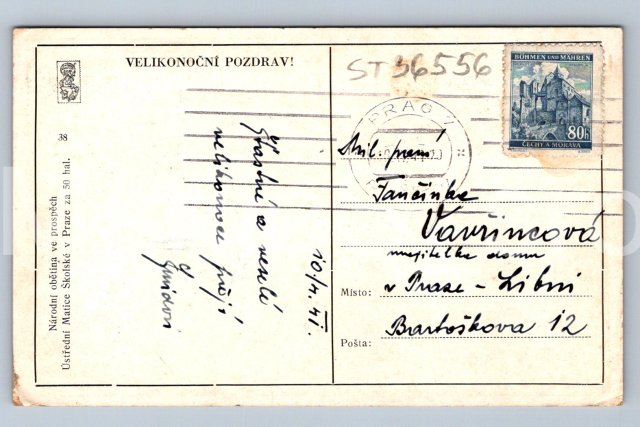 VELIKONOČNÍ POZDRAV!
ST 36556
BÖHMEN UND MÄHREN
80h
ČECHY A MORAVA
PRAG 7
38
Národní obětina ve prospěch
Ústřední Matice Školské v Praze za 50 hal.
10/4. 41.
Šťastné a veselé
velikonoce přejí
Mil. paní
Tančinka
Vavřincová
majitelka domu
Místo: v Praze - Libni
Bartoškova 12
Pošta: